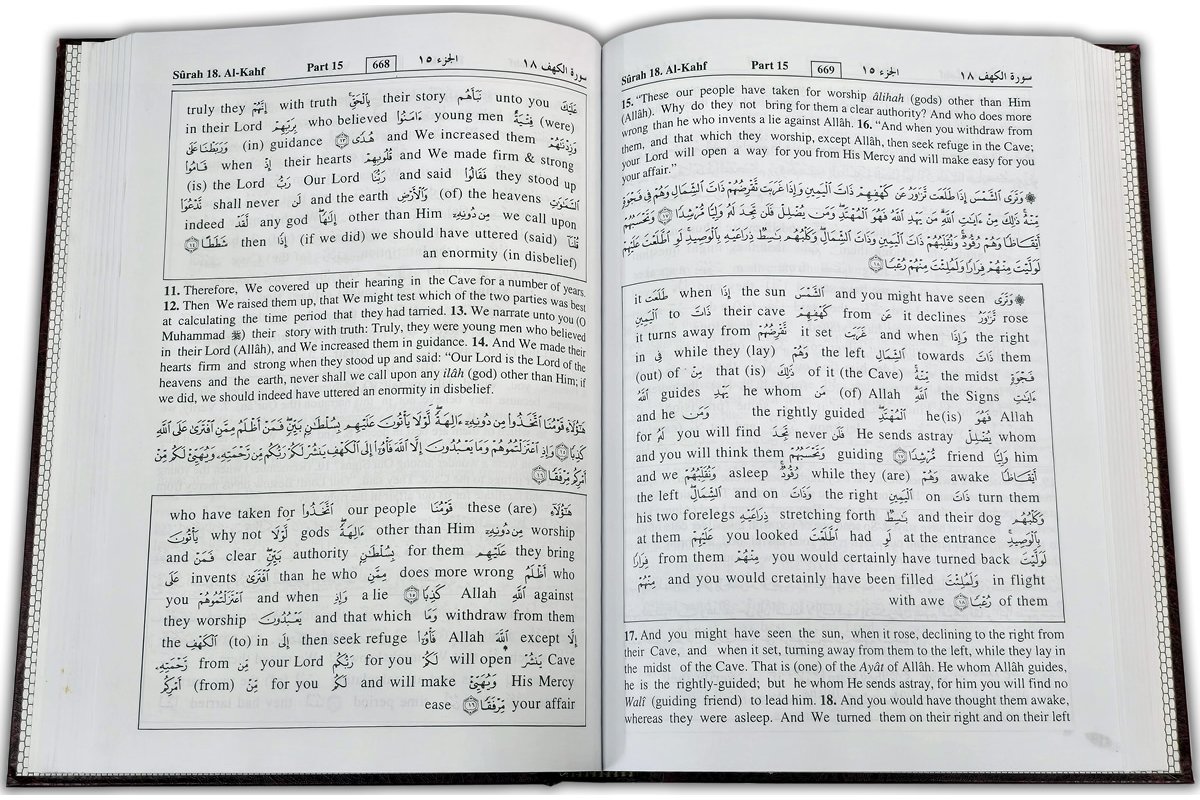 Sûrah 18. Al-Kahf Part 15 668 الجزء ١٥ سورة الكهف ١٨
truly they إِنَّهُمْ with truth بِالْحَقِّ their story نَبَأَهُم unto you عَلَيْكَ
in their Lord بِرَبِّهِمْ who believed ءَامَنُوا۟ young men فِتْيَةٌ (were)
(in) guidance وَرَبَطْنَا عَلَىٰ هُدًى ١٣ and We increased them وَزِدْنَٰهُمْ
when إِذْ قَامُوا۟ their hearts قُلُوبِهِمْ and We made firm & strong
(is) the Lord رَبُّ Our Lord رَبُّنَا and said فَقَالُوا۟ they stood up
shall never لَن نَّدْعُوَا۟ and the earth وَٱلْأَرْضِ (of) the heavens ٱلسَّمَٰوَٰتِ
indeed لَّقَدْ any god إِلَٰهًا other than Him مِن دُونِهِۦٓ we call upon
then إِذًا شَطَطًا ١٤ (if we did) we should have uttered (said) قُلْنَآ
an enormity (in disbelief)
11. Therefore, We covered up their hearing in the Cave for a number of years.
12. Then We raised them up, that We might test which of the two parties was best
at calculating the time period that they had tarried. 13. We narrate unto you (O
Muhammad ﷺ) their story with truth: Truly, they were young men who believed
in their Lord (Allâh), and We increased them in guidance. 14. And We made their
hearts firm and strong when they stood up and said: “Our Lord is the Lord of the
heavens and the earth, never shall we call upon any ilâh (god) other than Him; if
we did, we should indeed have uttered an enormity in disbelief.
هَٰٓؤُلَآءِ قَوْمُنَا ٱتَّخَذُوا۟ مِن دُونِهِۦٓ ءَالِهَةً لَّوْلَا يَأْتُونَ عَلَيْهِم بِسُلْطَٰنٍۭ بَيِّنٍ فَمَنْ أَظْلَمُ مِمَّنِ ٱفْتَرَىٰ عَلَى ٱللَّهِ
كَذِبًا ١٥ وَإِذِ ٱعْتَزَلْتُمُوهُمْ وَمَا يَعْبُدُونَ إِلَّا ٱللَّهَ فَأْوُۥٓا۟ إِلَى ٱلْكَهْفِ يَنشُرْ لَكُمْ رَبُّكُم مِّن رَّحْمَتِهِۦ وَيُهَيِّئْ لَكُم مِّنْ
أَمْرِكُم مِّرْفَقًا ١٦
who have taken for ٱتَّخَذُوا۟ our people قَوْمُنَا these (are) هَٰٓؤُلَآءِ
يَأْتُونَ why not لَّوْلَا gods ءَالِهَةً other than Him مِن دُونِهِۦٓ worship
and فَمَنْ clear بَيِّنٍ authority بِسُلْطَٰنٍۭ for them عَلَيْهِم they bring
عَلَى invents ٱفْتَرَىٰ than he who مِمَّنِ does more wrong أَظْلَمُ who
you ٱعْتَزَلْتُمُوهُمْ and when وَإِذِ a lie كَذِبًا ١٥ Allah ٱللَّهِ against
they worship يَعْبُدُونَ and that which وَمَا withdraw from them
the ٱلْكَهْفِ (to) in إِلَى then seek refuge فَأْوُۥٓا۟ Allah ٱللَّهَ except إِلَّا
رَّحْمَتِهِۦ from مِّن your Lord رَبُّكُم for you لَكُمْ will open يَنشُرْ Cave
أَمْرِكُم (from) مِّنْ for you لَكُم and will make وَيُهَيِّئْ His Mercy
ease مِّرْفَقًا ١٦ your affair
Sûrah 18. Al-Kahf Part 15 669 الجزء ١٥ سورة الكهف ١٨
15. “These our people have taken for worship âlihah (gods) other than Him
(Allâh). Why do they not bring for them a clear authority? And who does more
wrong than he who invents a lie against Allâh. 16. “And when you withdraw from
them, and that which they worship, except Allâh, then seek refuge in the Cave;
your Lord will open a way for you from His Mercy and will make easy for you
your affair.”
۞ وَتَرَى ٱلشَّمْسَ إِذَا طَلَعَت تَّزَٰوَرُ عَن كَهْفِهِمْ ذَاتَ ٱلْيَمِينِ وَإِذَا غَرَبَت تَّقْرِضُهُمْ ذَاتَ ٱلشِّمَالِ وَهُمْ فِى فَجْوَةٍ
مِّنْهُ ذَٰلِكَ مِنْ ءَايَٰتِ ٱللَّهِ مَن يَهْدِ ٱللَّهُ فَهُوَ ٱلْمُهْتَدِ وَمَن يُضْلِلْ فَلَن تَجِدَ لَهُۥ وَلِيًّا مُّرْشِدًا ١٧ وَتَحْسَبُهُمْ
أَيْقَاظًا وَهُمْ رُقُودٌ وَنُقَلِّبُهُمْ ذَاتَ ٱلْيَمِينِ وَذَاتَ ٱلشِّمَالِ وَكَلْبُهُم بَٰسِطٌ ذِرَاعَيْهِ بِٱلْوَصِيدِ لَوِ ٱطَّلَعْتَ عَلَيْهِمْ
لَوَلَّيْتَ مِنْهُمْ فِرَارًا وَلَمُلِئْتَ مِنْهُمْ رُعْبًا ١٨
it طَلَعَت when إِذَا the sun ٱلشَّمْسَ and you might have seen ۞ وَتَرَى
ٱلْيَمِينِ to ذَاتَ their cave كَهْفِهِمْ from عَن it declines تَّزَٰوَرُ rose
it turns away from تَّقْرِضُهُمْ it set غَرَبَت and when وَإِذَا the right
in فِى while they (lay) وَهُمْ the left ٱلشِّمَالِ towards ذَاتَ them
(out) of مِنْ that (is) ذَٰلِكَ of it (the Cave) مِّنْهُ the midst فَجْوَةٍ
ٱللَّهُ guides يَهْدِ he whom مَن (of) Allah ٱللَّهِ the Signs ءَايَٰتِ
and he وَمَن the rightly guided ٱلْمُهْتَدِ he(is) فَهُوَ Allah
for لَهُۥ you will find تَجِدَ never فَلَن He sends astray يُضْلِلْ whom
and you will think them وَتَحْسَبُهُمْ guiding مُّرْشِدًا ١٧ friend وَلِيًّا him
and we وَنُقَلِّبُهُمْ asleep رُقُودٌ while they (are) وَهُمْ awake أَيْقَاظًا
the left ٱلشِّمَالِ and on وَذَاتَ the right ٱلْيَمِينِ on ذَاتَ turn them
his two forelegs ذِرَاعَيْهِ stretching forth بَٰسِطٌ and their dog وَكَلْبُهُم
at them عَلَيْهِمْ you looked ٱطَّلَعْتَ had لَوِ at the entrance بِٱلْوَصِيدِ
فِرَارًا from them مِنْهُمْ you would certainly have turned back لَوَلَّيْتَ
مِنْهُمْ and you would cretainly have been filled وَلَمُلِئْتَ in flight
with awe رُعْبًا ١٨ of them
17. And you might have seen the sun, when it rose, declining to the right from
their Cave, and when it set, turning away from them to the left, while they lay in
the midst of the Cave. That is (one) of the Ayât of Allâh. He whom Allâh guides,
he is the rightly-guided; but he whom He sends astray, for him you will find no
Walî (guiding friend) to lead him. 18. And you would have thought them awake,
whereas they were asleep. And We turned them on their right and on their left